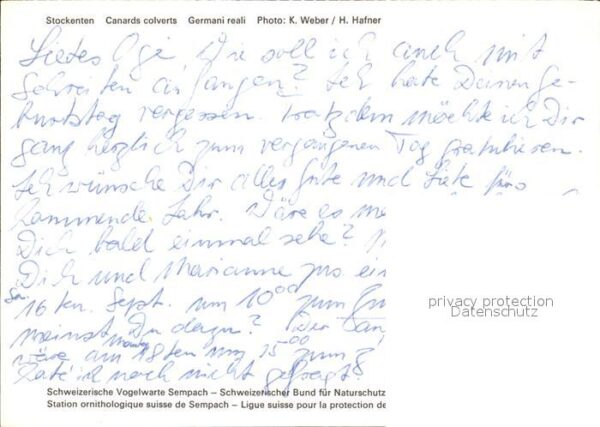 Stockenten Canards colverts Germani reali Photo: K. Weber / H. Hafner
Liebes Ogi, Wie soll ich auch mit
Schreiben anfangen? Ich habe Deinen Ge-
burtstag vergessen. Trotzdem möchte ich Dir
ganz herzlich zum vergangenen Tag gratulieren.
Ich wünsche Dir alles Gute und Liebe fürs
kommende Jahr. Wäre es
Dich bald einmal sehe?
Dich und Marianne zus ein
16ten. Sept. um 10⁰⁰ zum
meinst Du dazu? Der
wäre am 18ten um 15⁰⁰ zum
habe ich noch nicht gefragt?
privacy protection
Datenschutz
Schweizerische Vogelwarte Sempach – Schweizerischer Bund für Naturschutz
Station ornithologique suisse de Sempach – Ligue suisse pour la protection de